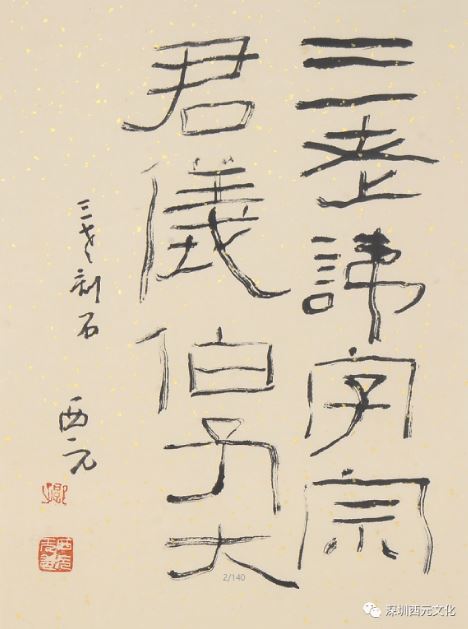 三老諱字宗
君儀伯子大
三老刻石
西元
2/140
深圳西元文化